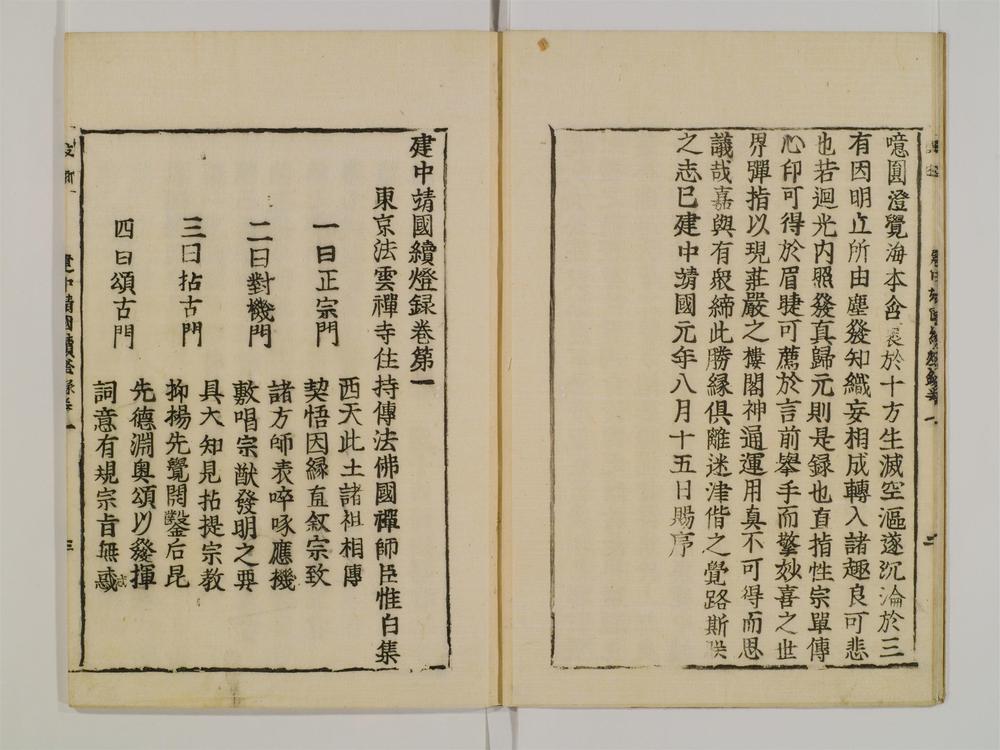 噫圓澄覺海本含裹於十方生滅空漚遂沉淪於三
有因明立所由塵發知織妄相成轉入諸趣良可悲
也若迴光内照發真歸元則是録也直指性宗單傳
心印可得於眉睫可薦於言前舉手而擎妙喜之世
界彈指以現莊嚴之樓閣神通運用真不可得而思
議哉嘉與有衆締此勝縁俱離迷津偕之覺路斯朕
之志已建中靖國元年八月十五日賜序
二
建中靖國續燈録卷第一
東京法雲禪寺住持傳法佛國禪師臣惟白集
一曰正宗門
西天此土諸祖相傳
契悟因縁直叙宗致
二曰對機門
諸方師表啐啄應機
敷唱宗猷發明之要
三曰拈古門
具大知見拈提宗教
抑揚先覺開鑿后昆
四曰頌古門
先德淵奥頌以發揮
詞意有規宗旨無惑
建中靖國續燈録卷一
三